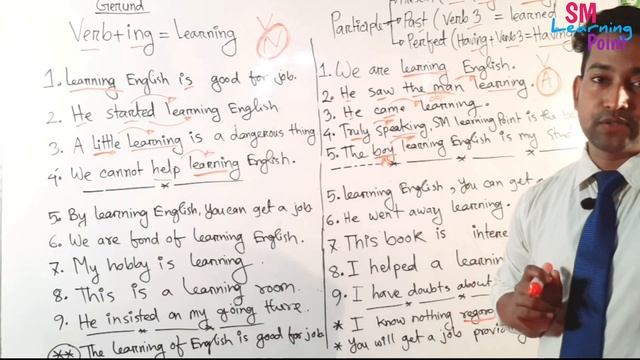 Gerund
Verb+ing = Learning
N
1. Learning English is good for job.
2. He started learning English
3. A little learning is a dangerous thing
4. We cannot help learning English.
5. By learning English, you can get a job
6. We are fond of learning English.
7. My hobby is learning
8. This is a learning room.
9. He insisted on my going there.
** The learning of English is good for job
Participle
Past (Verb 3 = learned
Perfect (Having+Verb3 = Having
A
1. We are learning English.
2. He saw the man learning.
3. He came learning.
4. Truly speaking, SM learning Point is the
5. The boy learning English is my
5. Learning English, you can get
6. He went away learning.
7. This book is
8. I helped a
9. I have doubts about
* I know nothing
* You will get a job
SM
Learning
Point